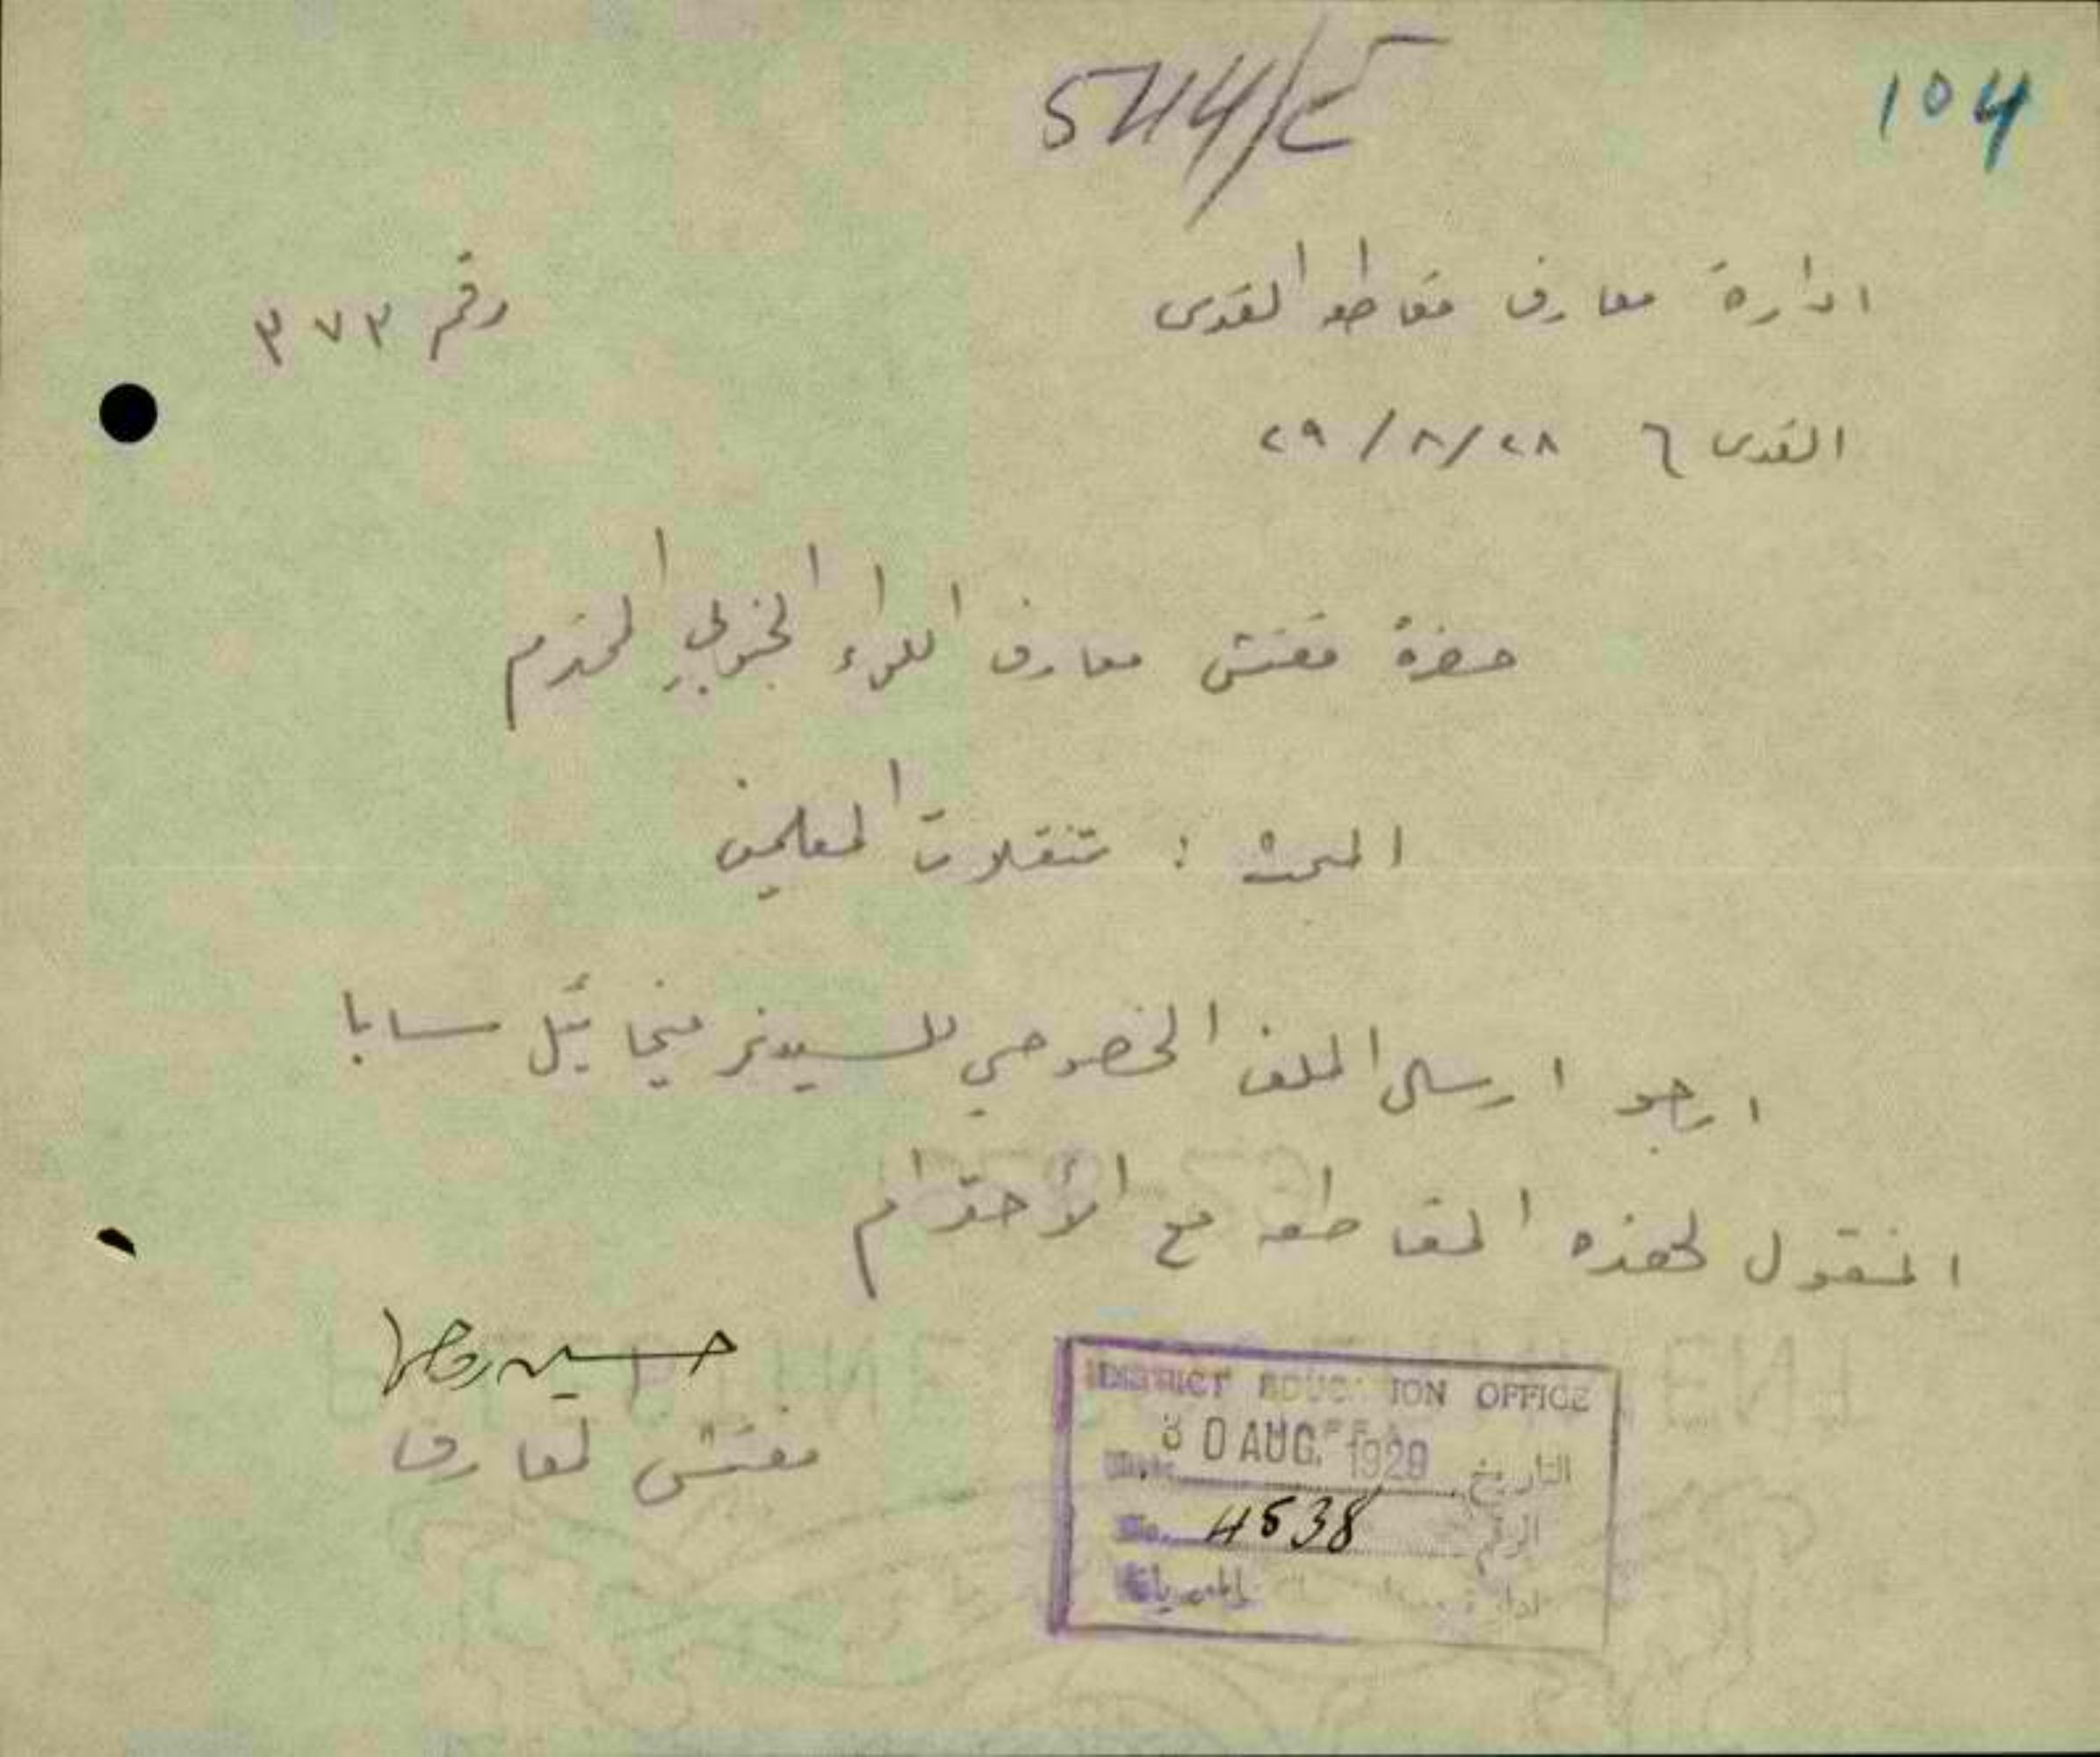 544/ح
104
ادارة معارف مقاطعة القدس
رقم ٣٧٣
القدس ٦ ٢٨/٨/٢٩
حضرة مفتش معارف اللواء الجنوبي المحترم
البحث : تنقلات المعلمين
ارجو ارسال الملف الخصوصي للسيد ميخائيل سابا
المنقول لهذه المقاطعة مع الأحترام
حسين
مفتش المعارف
DISTRICT EDUCATION OFFICE
30 AUG. 1929 التاريخ
No. 4538 الرقم
ادارة